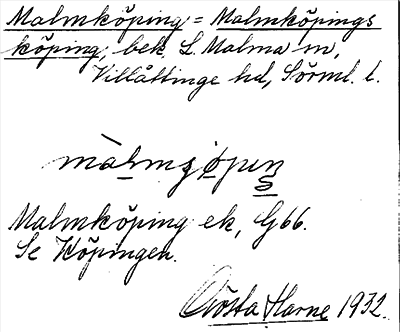 Malmköping = Malmköpings
köping, bek. L. Malma sn,
Villåttinge hd, Sörml. l.
Malmköping ek, G66.
Se Köpingen.
Gösta Harne 1932.